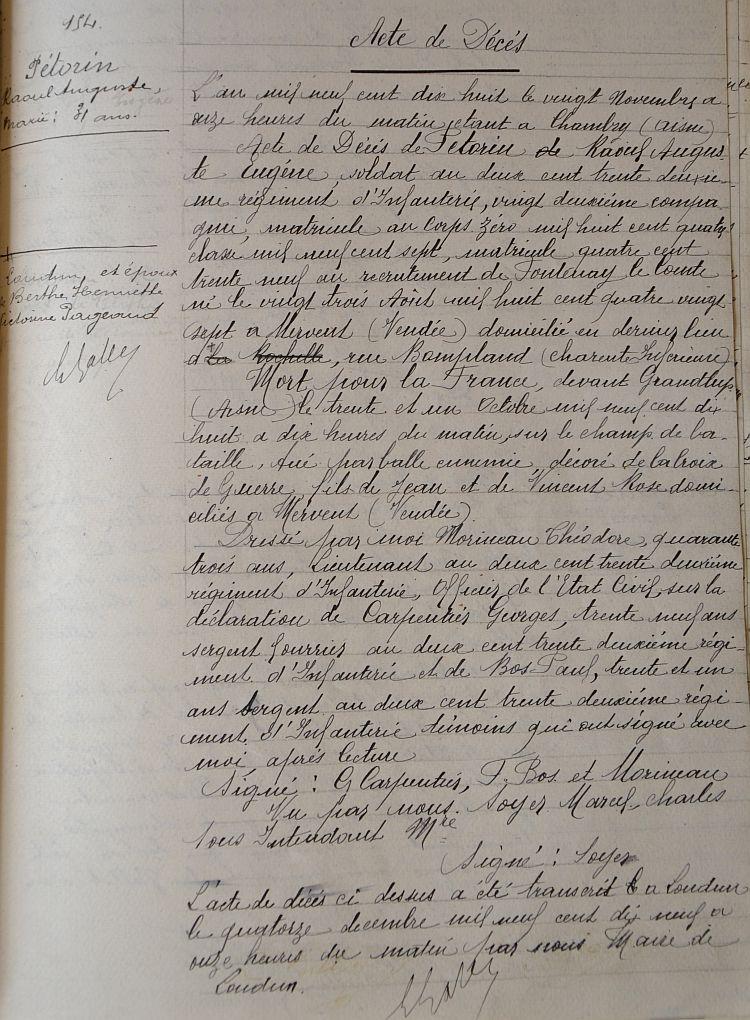 154.
Pétorin
Raoul Auguste,
Eugène
Marié: 31 ans.
Loudun, et époux
de Berthe Henriette
Victorine Pageaud
Acte de Décés
L'an mil neuf cent dix huit le vingt Novembre a
onze heures du matin, etant a Chambry (Aisne)
Acte de Décés de Pétorin de Raoul Augus-
te Eugéne, soldat au deux cent trente deuxie-
me régiment d'Infanterie, vingt deuxième compa
gnie, matricule au Corps zéro mil huit cent quatre
classe mil neuf cent sept, matricule quatre cent
trente neuf au recrutement de Fontenay le Comte
né le vingt trois Aout mil huit cent quatre vingt
sept a Mervent (Vendée) domicilié en dernier lieu
d'La Rochelle, rue Bompland (Charente Inférieure)
Mort pour la France, devant Grandlup
(Aisne) le trente et un Octobre mil neuf cent dix
huit a dix heures du matin, sur le champ de ba-
taille, tué par balle ennemie, décoré de la croix
de Guerre, fils de Jean et de Vincent Rose domi-
ciliés a Mervent (Vendée)
Dressé par moi Morineau Théodore, quarante
trois ans, Lieutenant au deux cent trente deuxième
régiment d'Infanterie, Officier de l'Etat Civil, sur la
déclaration de Carpentier Georges, trente neuf ans
sergent fourrier au deux cent trente deuxiéme régi-
ment d'Infanterie et de Bos Paul, trente et un
ans sergent au deux cent trente deuxiéme régi-
ment d'Infanterie témoins qui ont signé avec
moi, aprés lecture
Signé: G Carpentier, P. Bos et Morineau
Vu par nous. Soyer Marcel, Charles
Sous Intendant Mre
Signé: Soyer
L'acte de décés ci dessus a été transcrit a Loudun
le quatorze decembre mil neuf cent dix neuf a
onze heures du matin par nous Maire de
Loudun.